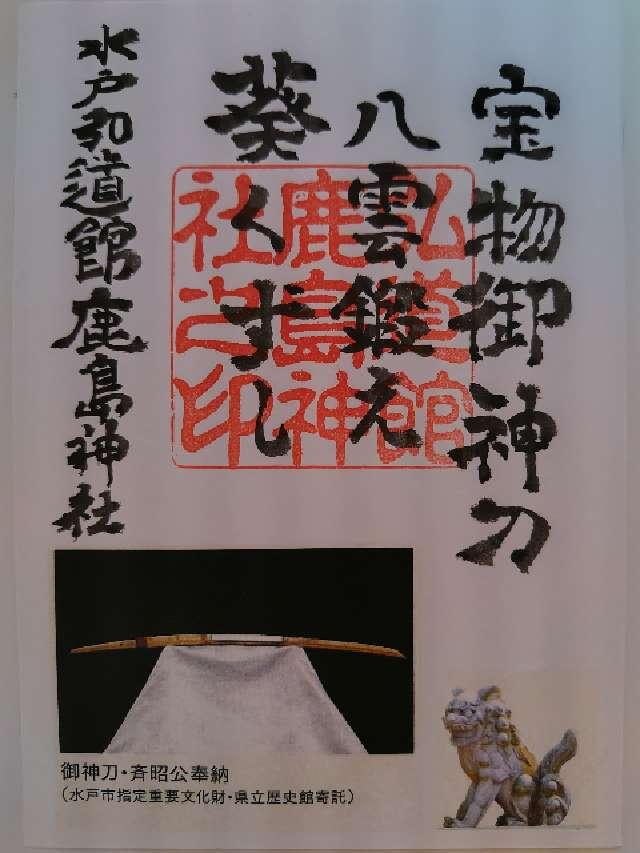 宝物御神刀
八雲鍛え
葵くずし
水戸弘道館鹿島神社
弘道館
鹿島神
社之印
御神刀・斉昭公奉納
(水戸市指定重要文化財・県立歴史館寄託)